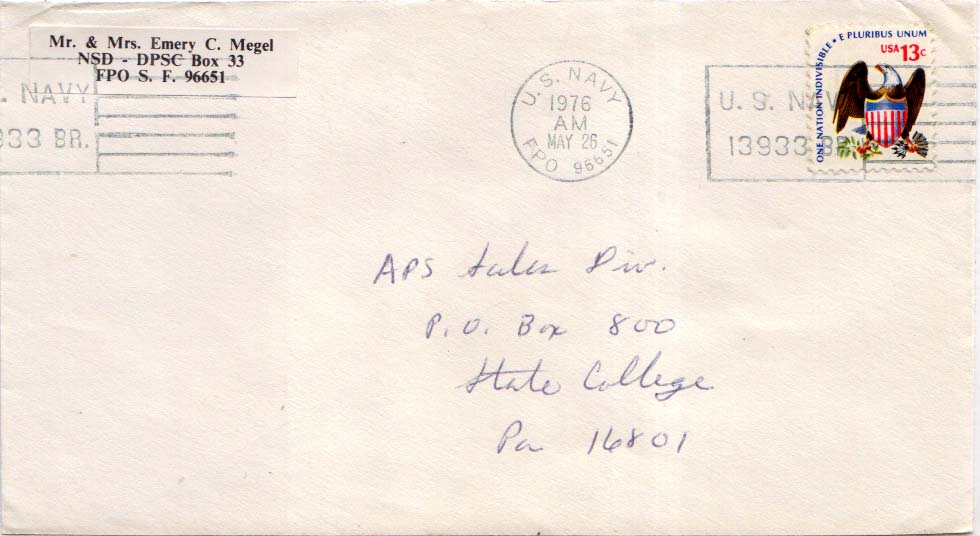 Mr. & Mrs. Emery C. Megel
NSD - DPSC Box 33
FPO S. F. 96651
. NAVY
933 BR.
U. S. NAVY
1976
AM
MAY 26
FPO 96651
U. S. NAVY
13933 BR.
ONE NATION INDIVISIBLE • E PLURIBUS UNUM
USA 13c
APS Sales Div.
P.O. Box 800
State College
Pa 16801